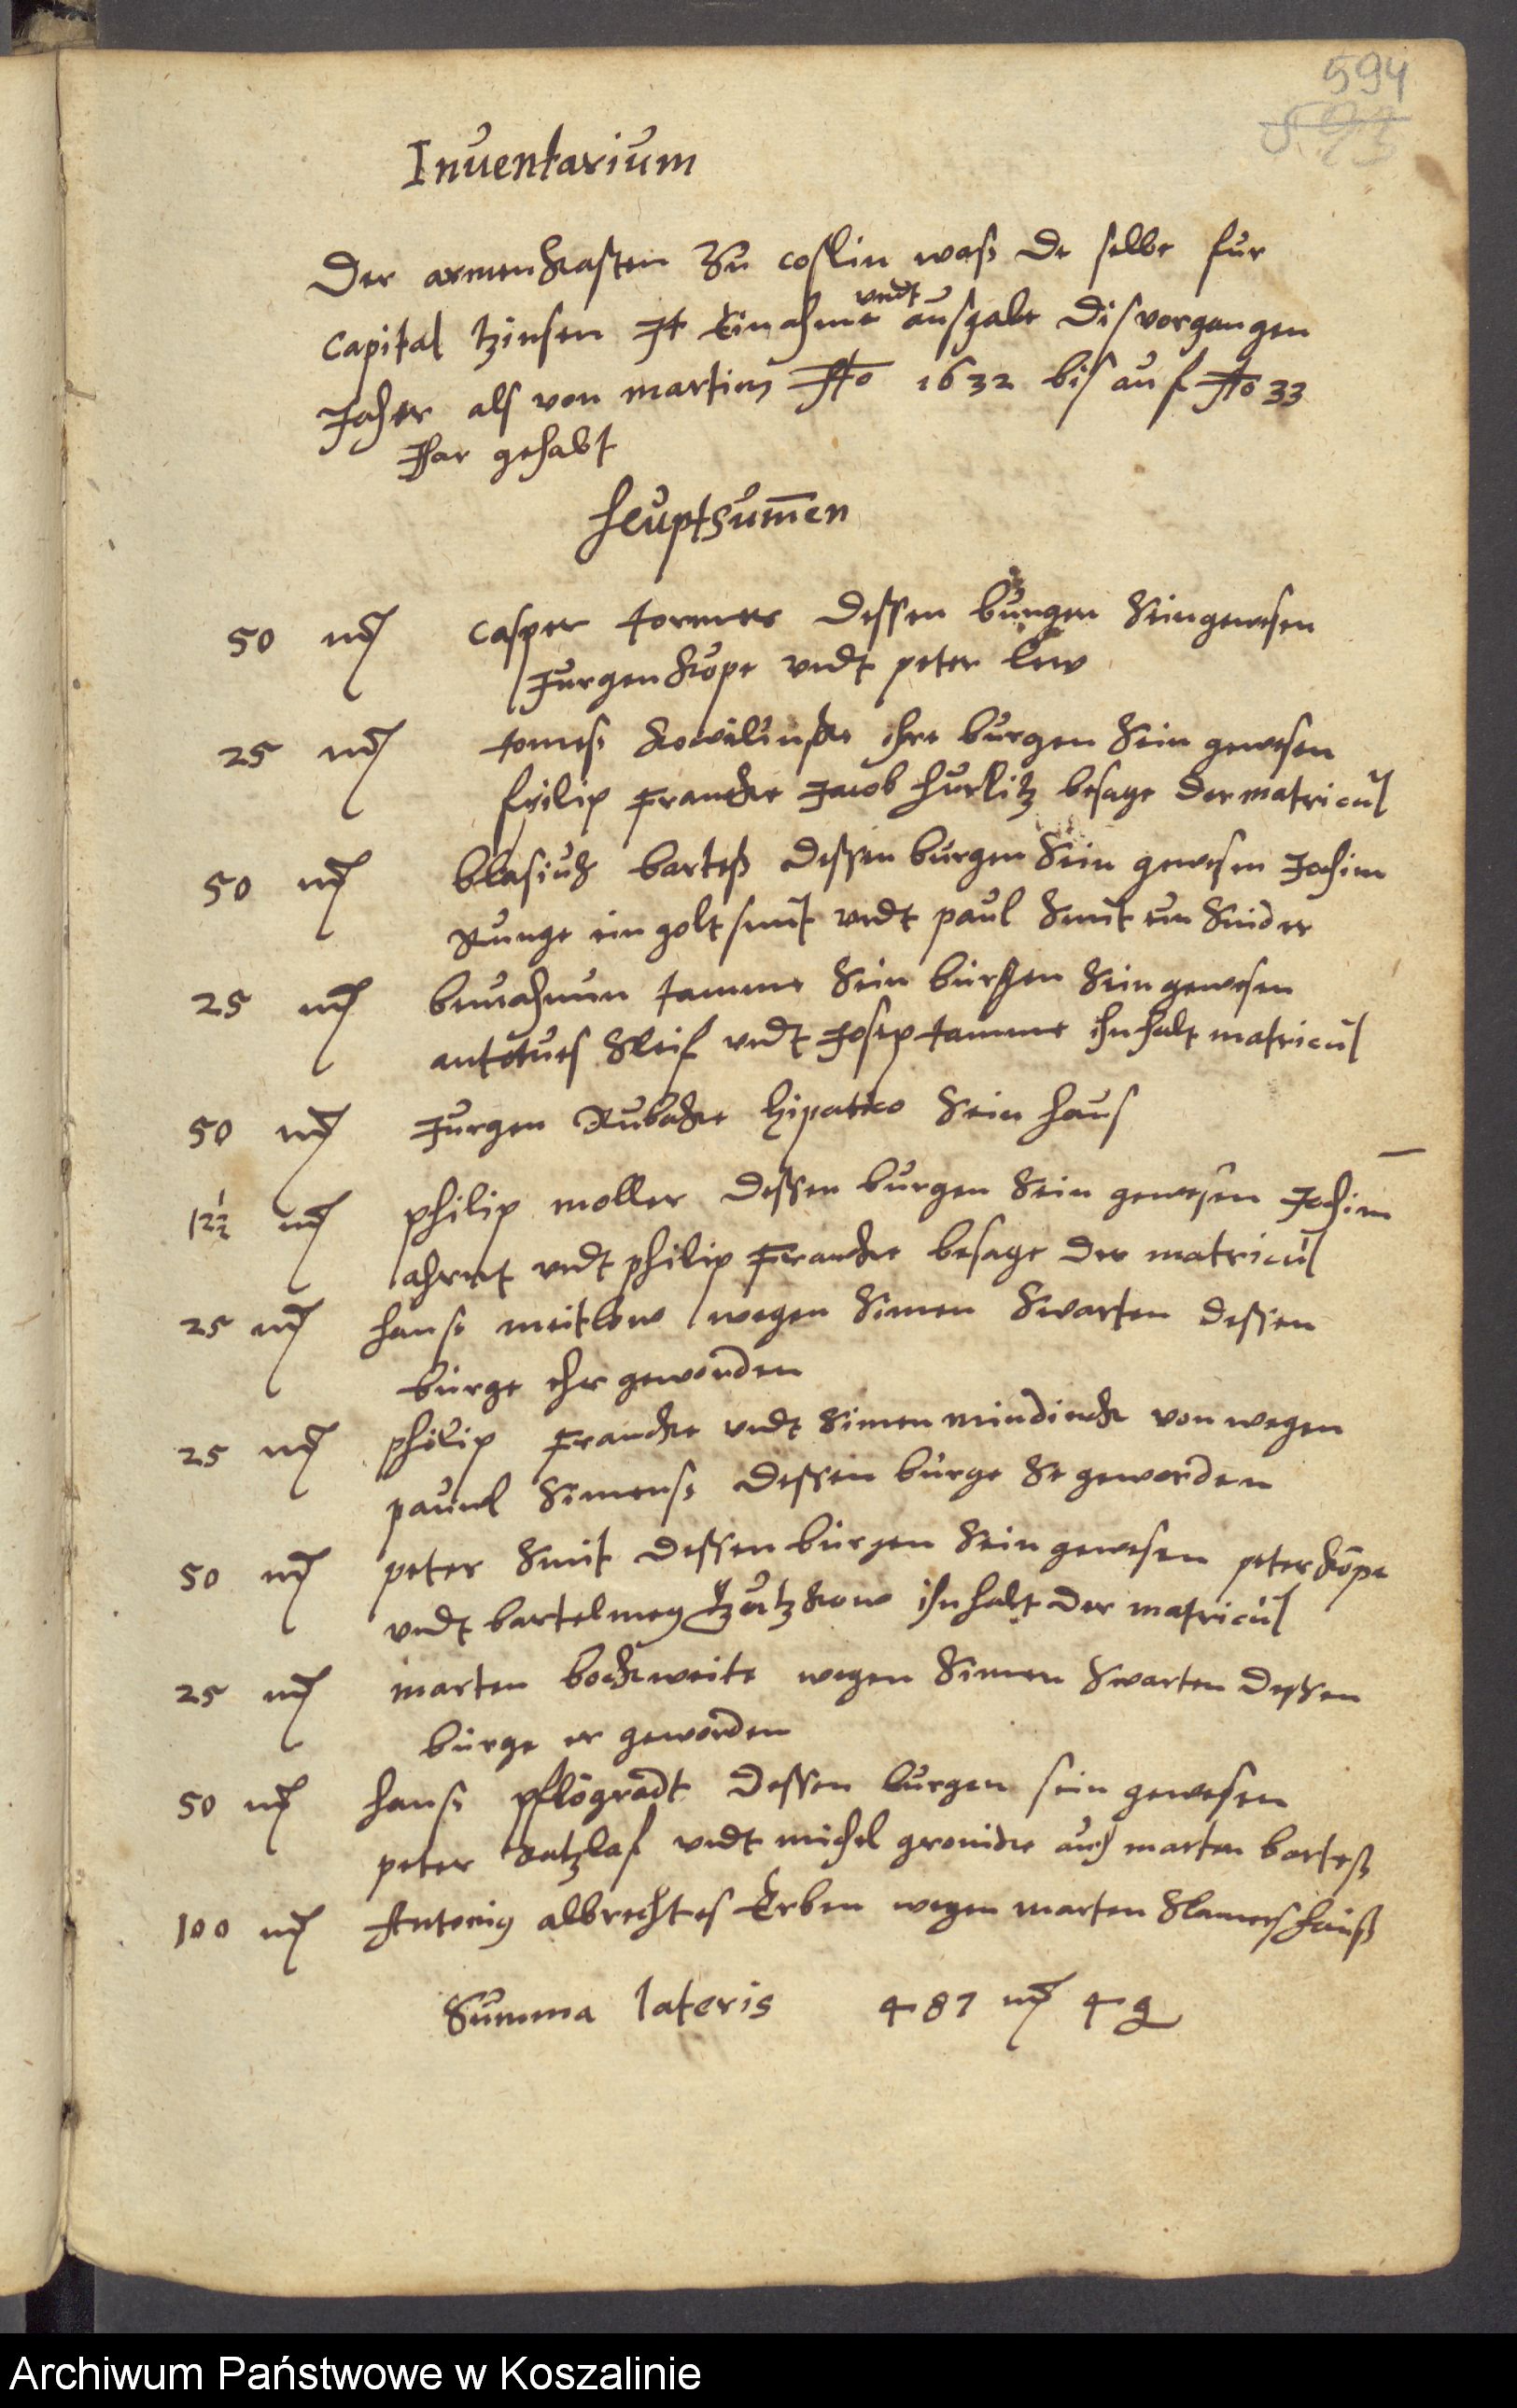 594
593
Inuentarium
Der armenkasten Zu coslin wass de selbe fur
capital tzinsen It Einahme vndt ausgabe dis vorgangen
Jaher als von martiny Ao 1632 bis auf Ao 33
Jar gehabt
heuptsum̄en
50 mk casper tormer dessen burgen sein gewesen
Jurgen kope vndt peter lew
25 mk tomess ihre burgen sein gewesen
frilip Francke Jacob hurlitz besage der matricul
50 mk blasiuss bartess dessen burgen sein gewesen Jochim
Runge ein golt smit vndt paul smit ein snider
25 mk tamme sein burgen sein gewesen
sleif vndt Josep tamme ihnhalt matricul
50 mk Jurgen Rubacke hipateco sein haus
12½ mk philip moller dessen burgen sein gewesen Jochim
ahrnt vndt philip Francke besage der matricul
25 mk hanss meitlow wegen simen swarten dessen
burge ehr geworden
25 mk philip Francke vndt simen mindinck von wegen
pauwl simenss dessen burge se geworden
50 mk peter smit dessen burgen sein gewesen peter köpe
vndt bartelmey ihnhalt der matricul
25 mk marten bockweite wegen simen swarten dessen
burge er geworden
50 mk hanss pflogradt dessen burgen sein gewesen
peter ratzlaf vndt michel gronicke auch marten bartess
100 mk Antonius albrechtes Erben wegen marten slamershauss
Summa lateris 487 mk 4 g
Archiwum Państwowe w Koszalinie